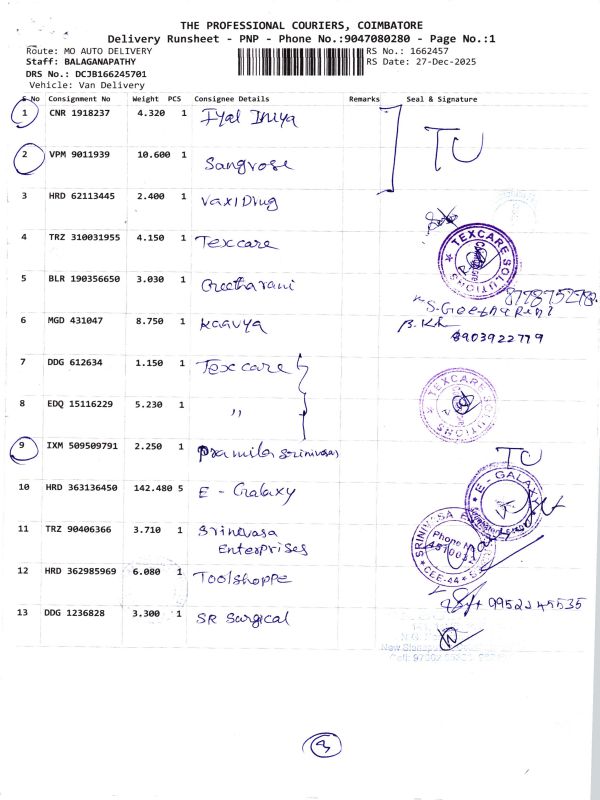 THE PROFESSIONAL COURIERS, COIMBATORE
Delivery Runsheet - PNP - Phone No.:9047080280 - Page No.:1
Route: MO AUTO DELIVERY RS No.: 1662457
Staff: BALAGANAPATHY RS Date: 27-Dec-2025
DRS No.: DCJB166245701
Vehicle: Van Delivery
S No Consignment No Weight PCS Consignee Details Remarks Seal & Signature
1 CNR 1918237 4.320 1 Iyal Iniya
TU
2 VPM 9011939 10.600 1 Sangrose
3 HRD 62113445 2.400 1 Vaxidrug
4 TRZ 310031955 4.150 1 Texcare TEXCARE SOLUTIONS
5 BLR 190356650 3.030 1 Geetharani
6 MGD 431047 8.750 1 Kaavya
8903922779
7 DDG 612634 1.150 1 Texcare TEXCARE SOLUTIONS
8 EDQ 15116229 5.230 1 "
9 IXM 509509791 2.250 1 Pramila Srinivasan TU
10 HRD 363136450 142.480 5 E - Galaxy E - GALAXY
11 TRZ 90406366 3.710 1 Srinivasa Enterprises SRINIVASA Phone No
12 HRD 362985969 6.080 1 Toolshoppe
13 DDG 1236828 3.300 1 SR Surgical
3